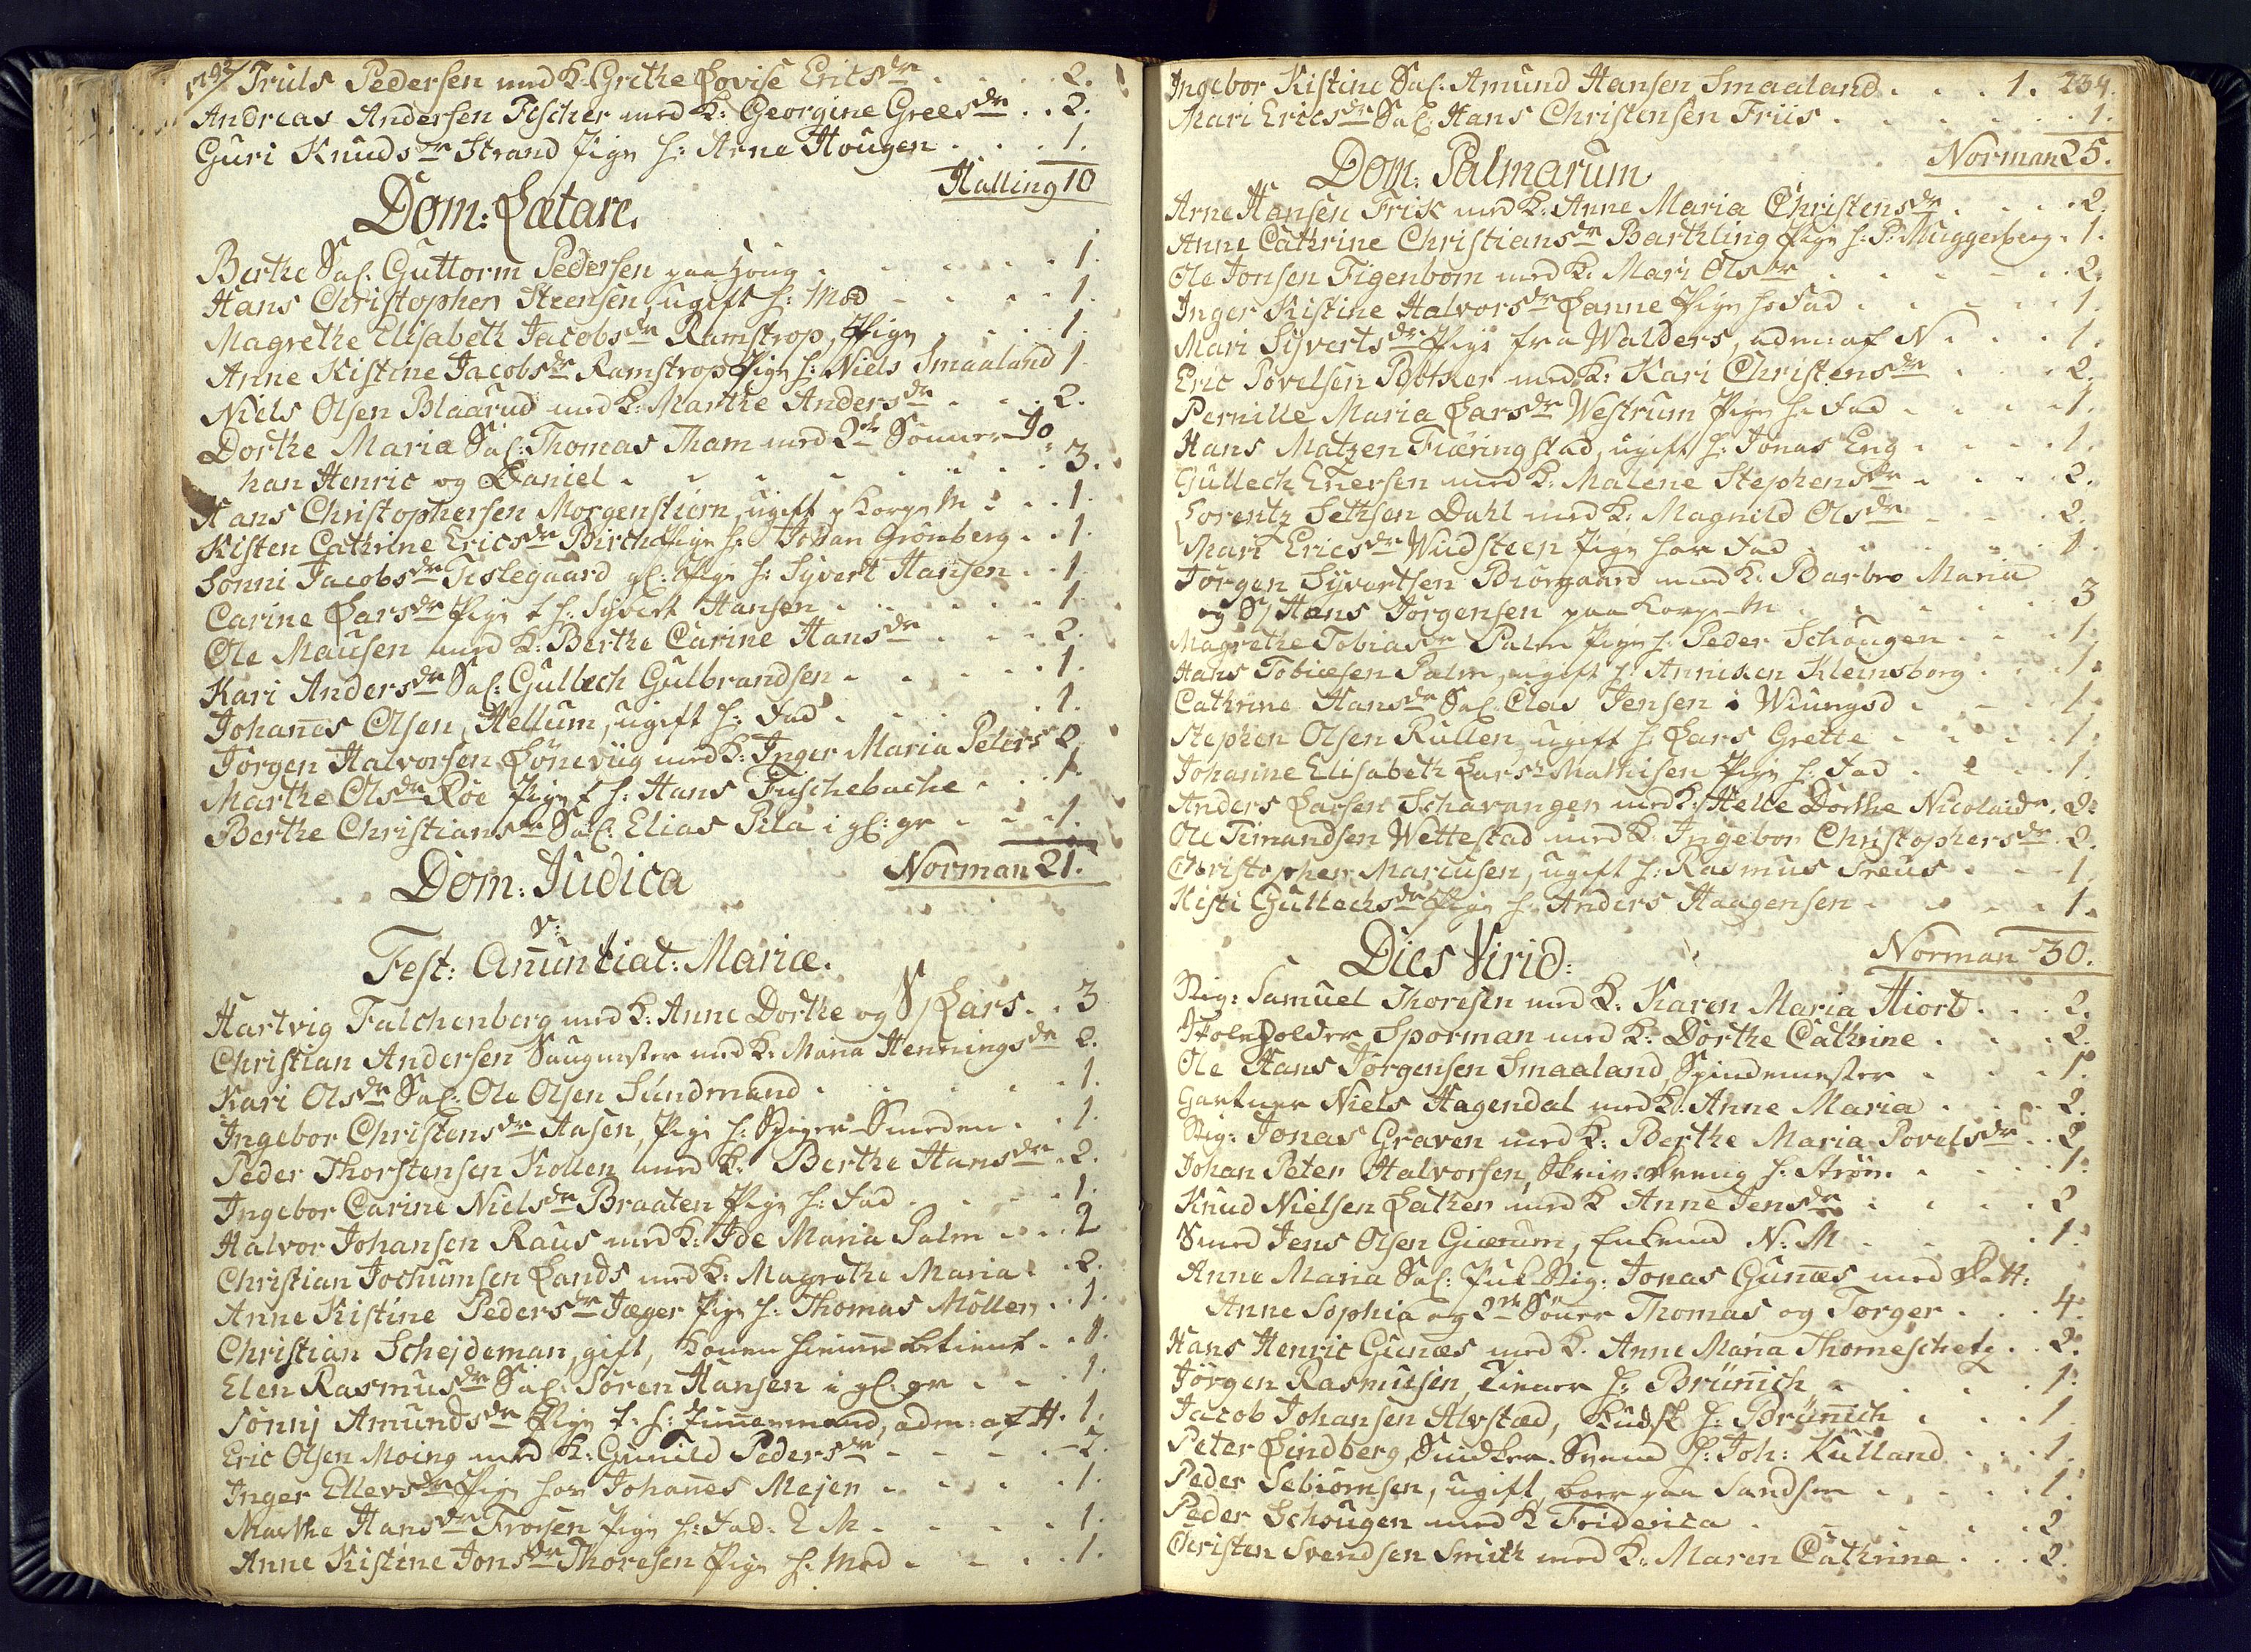 1797
Truls Pedersen med K. Grethe Lovise Ericsdr . . . . 2.
Andreas Andersen Fischer med K: Georgine Greesdr . . 2.
Guri Knudsdr Strand Pige h: Arne Hougen . . . . 1.
Halling 10
Dom: Lætare.
Berthe Sal. Guttorm Pedersen paa Houg . . . . . 1.
Hans Christopher Steensen, ugift h: Mod . . . . 1.
Magrethe Elisabeth Jacobsdr Ramstrop, Pige . . . 1.
Anne Kistine Jacobsdr Ramstrop Pige h: Niels Smaaland 1.
Niels Olsen Blaarud med K: Marthe Andersdr . . . 2.
Dorthe Maria Sal: Thomas Tham med 2de Sønner Jo-
han Henric og Daniel . . . . . . . 3.
Hans Christophersen Morgenstiern, ugift p Korps M . . 1.
Kisten Cathrine Ericsdr Birch Pige h: Johan Grönberg . . 1.
Sonni Jacobsdr Tislegaard gl: Pige h: Syvert Hansen . . 1.
Carine Larsdr Pige t h: Syvert Hansen . . . . . 1.
Ole Mausen med K: Berthe Carine Hansdr . . . 2.
Kari Andersdr Sal: Gulbech Gulbrandsen . . . . 1.
Johanes Olsen, Hellum, ugift h: Fad . . . . 1.
Jørgen Halvorsen Løneviig med K: Inger Maria Peters 2.
Marthe Olsdr Roe Pige t h: Hans Fuschebache . . . 1.
Berthe Christiansdr Sal: Elias Pila i gl: gr . . . 1.
Norman 21.
Dom: Judica
v:
Fest: Anuntiat: Mariæ.
Hartvig Falchenberg med K: Anne Dorthe og S/ Lars . . 3
Christian Andersen Saugmester med K: Maria Henningsdr 2.
Kari Olsdr Sal: Ole Olsen Sundmand . . . . . 1.
Ingebor Christensdr Aasen, Pige h: Spiger-Smeden . . 1.
Peder Thorstensen Kollen med K: Berthe Hansdr . 2.
Ingebor Carine Nielsdr Braaten Pige h: Fad . . . . 1.
Halvor Johansen Raus med K: Ide Maria Palm . . . 2
Christian Jochumsen Lands med K: Magrethe Maria . . 2.
Anne Kistine Pedersdr Jæger Pige h: Thomas Möller . . 1.
Christian Schejdeman, gift, Konen hieme betient . . 1.
Elen Rasmusdr Sal: Sören Hansen i gl: gr . . . 1.
Sönnj Amundsdr Pige t: h: Timmermand, adm: af H. 1.
Eric Olsen Moing med K: Gunild Pedersdr . . . . 2.
Inger Ellevsdr Pige hos Johanes Mejer . . . . . 1.
Marthe Hansdr Frorsen Pige h: Fad. E M . . . . 1.
Anne Kistine Jonsdr Thoresen Pige h: Mod . . . . 1.
Ingebor Kistine Sal: Amund Hansen Smaaland . . . 1. 234.
Mari Ericsdr Sal: Hans Christensen Friis . . . . . 1.
Norman 25.
Dom: Palmarum
Arne Hansen Frisk med K: Anne Maria Christensdr . . . . 2.
Anne Cathrine Christiansdr Barthling Pige h: P: Muggerberg . 1.
Ole Jonsen Figenbom med K: Mari Olsdr . . . . . 2.
Inger Kistine Halvorsdr Lanne Pige h: Fad . . . . 1.
Mari Syvertsdr Pige fra Walders, adm: af N . . . . 1.
Eric Povelsen Bötker med K: Kari Christensdr . . . 2.
Pernille Maria Larsdr Westrum Pige h: Fad . . . . 1.
Hans Matzen Fiæringstad, ugift h: Jonas Eng . . . . 1.
Gullech Enersen med K: Malene Stephensdr . . . . 2.
Lorentz Sethsen Dahl med K: Magnild Olsdr . . . . 2.
Mari Ericsdr Wudsteen Pige hos Fad . . . . . 1.
Jørgen Syvertsen Biörgaard med K: Barbro Maria
og S/ Hans Jørgensen paa Korps-M . . . . . 3
Magrethe Tobiasdr Palm Pige h: Peder Schougen . . . 1.
Hans Tobiesen Palm, ugift h: Anniken Kleinsborg . . . 1.
Cathrine Hansdr Sal: Clas Jensen i Wiungsd . . . . 1.
Stephen Olsen Rullen, ugift h: Lars Grette . . . . 1.
Johanne Elisabeth Larsdr Mathisen Pige h: Fad . . . . 1.
Anders Larsen Schavanger med K: Helle Dorthe Nicolaidr . 2.
Ole Timandsen Wettestad med K: Ingebor Christophersdr . 2.
Christopher Marcusen, ugift h: Rasmus Preus . . . 1.
Kisti Gullechsdr Pige h: Anders Haagensen . . . . 1.
Norman 30.
Dies Virid:
Sig: Samuel Thoresen med K: Karen Maria Hiort . . . 2.
Stolpolder Sporman med K: Dorthe Cathrine . . . . 2.
Ole Hans Jørgensen Smaaland, Spindemester . . . . 1.
Gartner Niels Hagendal med K: Anne Maria . . . . 2.
Sig: Jonas Graven med K: Berthe Maria Povelsdr . . 2.
Johan Peter Halvorsen, Skriv: dreng h: Ström . . . . 1.
Knud Nielsen Lather med K Anne Jensdr . . . . 2
Smed Jens Olsen Giærum, Enkemd N: M . . . . 1.
Anne Maria Sal: Fuld. Sig: Jonas Gunæs med Datt:
Anne Sophia og 2de Sönner Thomas og Torger . . . 4.
Hans Henric Gunæs med K. Anne Maria Thorneschetz . . 2.
Jörgen Rasmusen, Tiener h: Brünnich . . . . . 1.
Jacob Johansen Alvstad, Kudsk h: Brünnich . . . . 1.
Peter Lindberg, Snidker-Svend h: Joh: Kulland . . . . 1.
Peder Sebiörnsen, ugift, boer paa Sandsen . . . . 1.
Peder Schougen med K Friderica . . . . . . 2.
Christen Svendsen Smith med K: Maren Cathrine . . . 2.